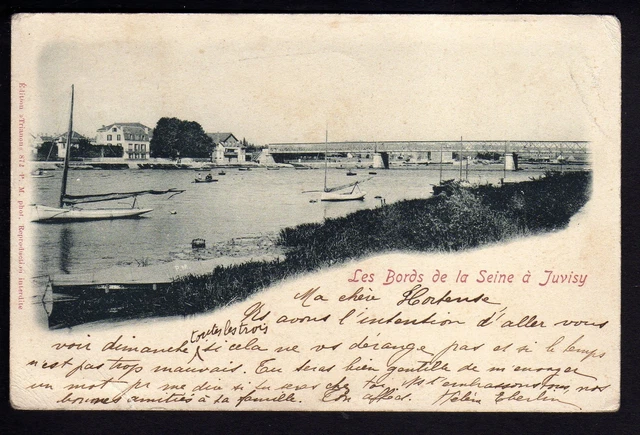 Édition «Trianon» 874 P. M. phot. Reproduction interdite
Les Bords de la Seine à Juvisy
Ma chère Hortense
avons l'intention d'aller vous
toutes les trois
voir dimanche si cela ne vs derange pas et si le temps
n'est pas trop mauvais. Tu seras bien gentille de m'envoyer
un mot pr me dire si tu seras chez toi. embrassons tous, nos
bonnes amitiés à ta famille. Ton affect.